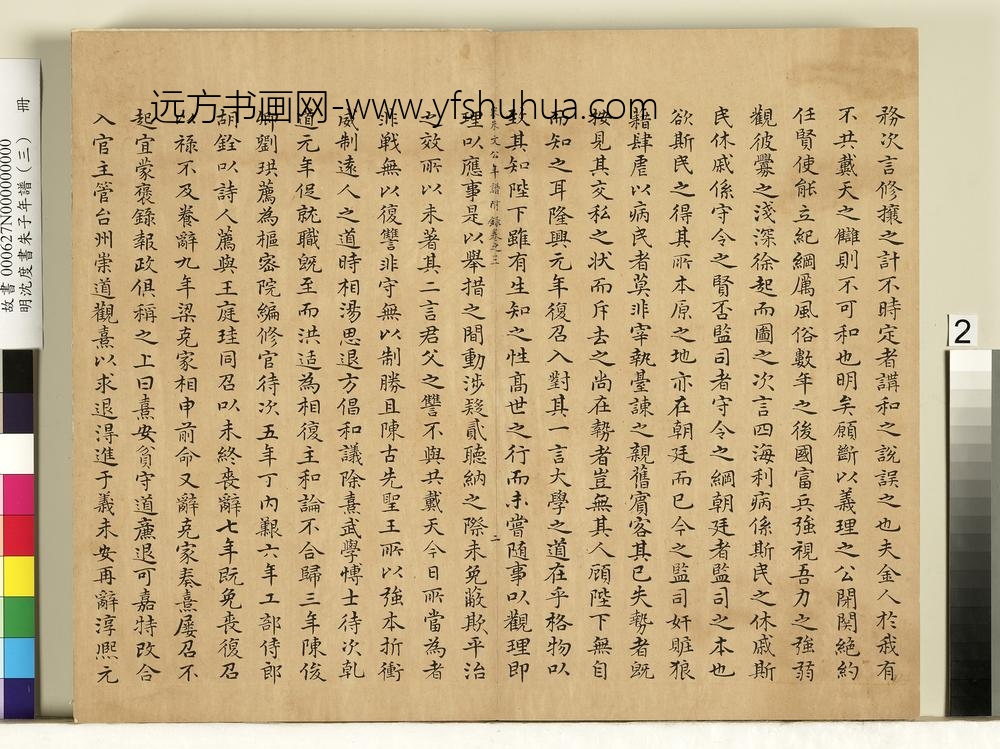 远方书画网-www.yfshuhua.com
務次言修攘之計不時定者講和之說誤之也夫金人於我有
不共戴天之讎則不可和也明矣願斷以義理之公閉関絕約
任賢使能立紀綱厲風俗數年之後國富兵強視吾力之強弱
觀彼釁之淺深徐起而圖之次言四海利病係斯民之休戚斯
民休戚係守令之賢否監司者守令之綱朝廷者監司之本也
欲斯民之得其所本原之地亦在朝廷而已今之監司奸贓狼
籍肆虐以病民者莫非宰執臺諫之親舊賓客其已失勢者既
按見其交私之狀而斥去之尚在勢者豈無其人顧陛下無自
而知之耳隆興元年復召入對其一言大學之道在乎格物以
致其知陛下雖有生知之性高世之行而未嘗随事以觀理即
朱文公年譜附錄卷之三
二
理以應事是以舉措之間動涉疑貳聽納之際未免蔽欺平治
之效所以未著其二言君父之讐不與共戴天今日所當為者
非戰無以復讐非守無以制勝且陳古先聖王所以強本折衝
威制遠人之道時相湯思退方倡和議除熹武學博士待次乹
道元年促就職既至而洪适為相復主和論不合歸三年陳俊
卿劉珙薦為樞密院編修官待次五年丁內艱六年工部侍郎
胡銓以詩人薦與王庭珪同召以未終喪辭七年既免喪復召
以祿不及養辭九年梁克家相申前命又辭克家奏熹屢召不
起宜蒙褒錄報政俱稱之上曰熹安貧守道廉退可嘉特改合
入官主管台州崇道觀熹以求退得進于義未安再辭淳熈元
故書000627N000000000
冊
明沈度書朱子年譜（三）
2